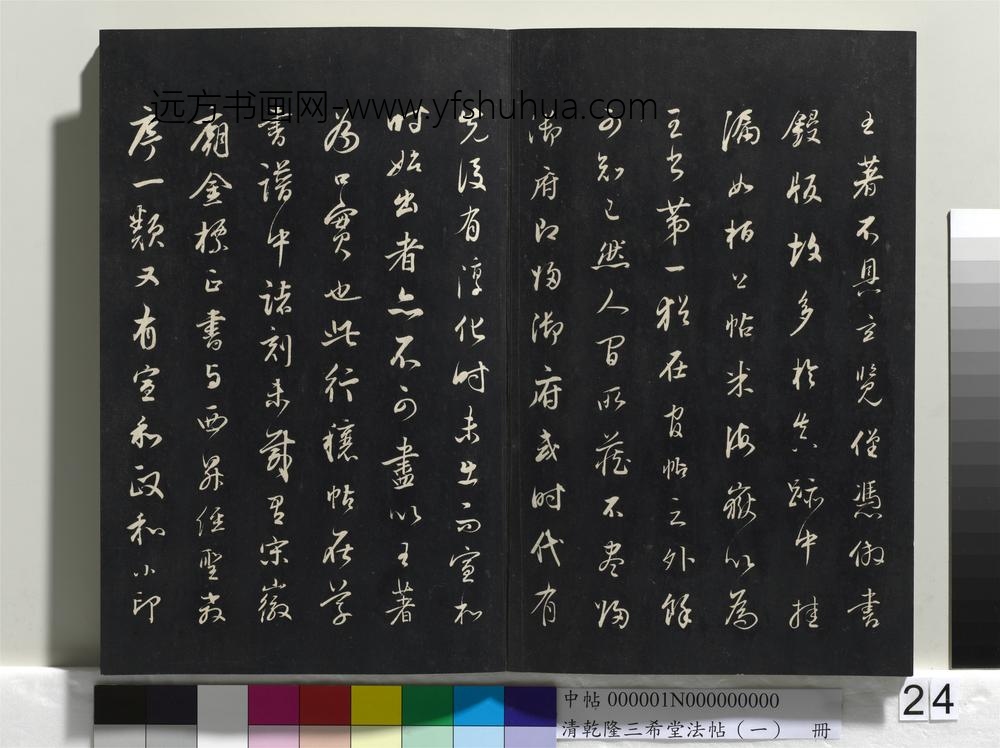 远方书画网-www.yfshuhua.com
王著不具玄覽僅憑倣書
鋟版故多於真蹟中挂
漏如桓公帖米海嶽以為
王書第一猶在官帖之外餘
可知已然人間所藏不盡歸
御府即歸御府或時代有
先後有淳化時未出而宣和
時始出者亦不可盡以王著
為口實也此行穰帖在宋
書譜中諸刻未載有宋徽
廟金標正書與西昇經聖教
序一類又有宣和政和小印
中帖 000001N000000000
清乾隆三希堂法帖（一） 冊
24